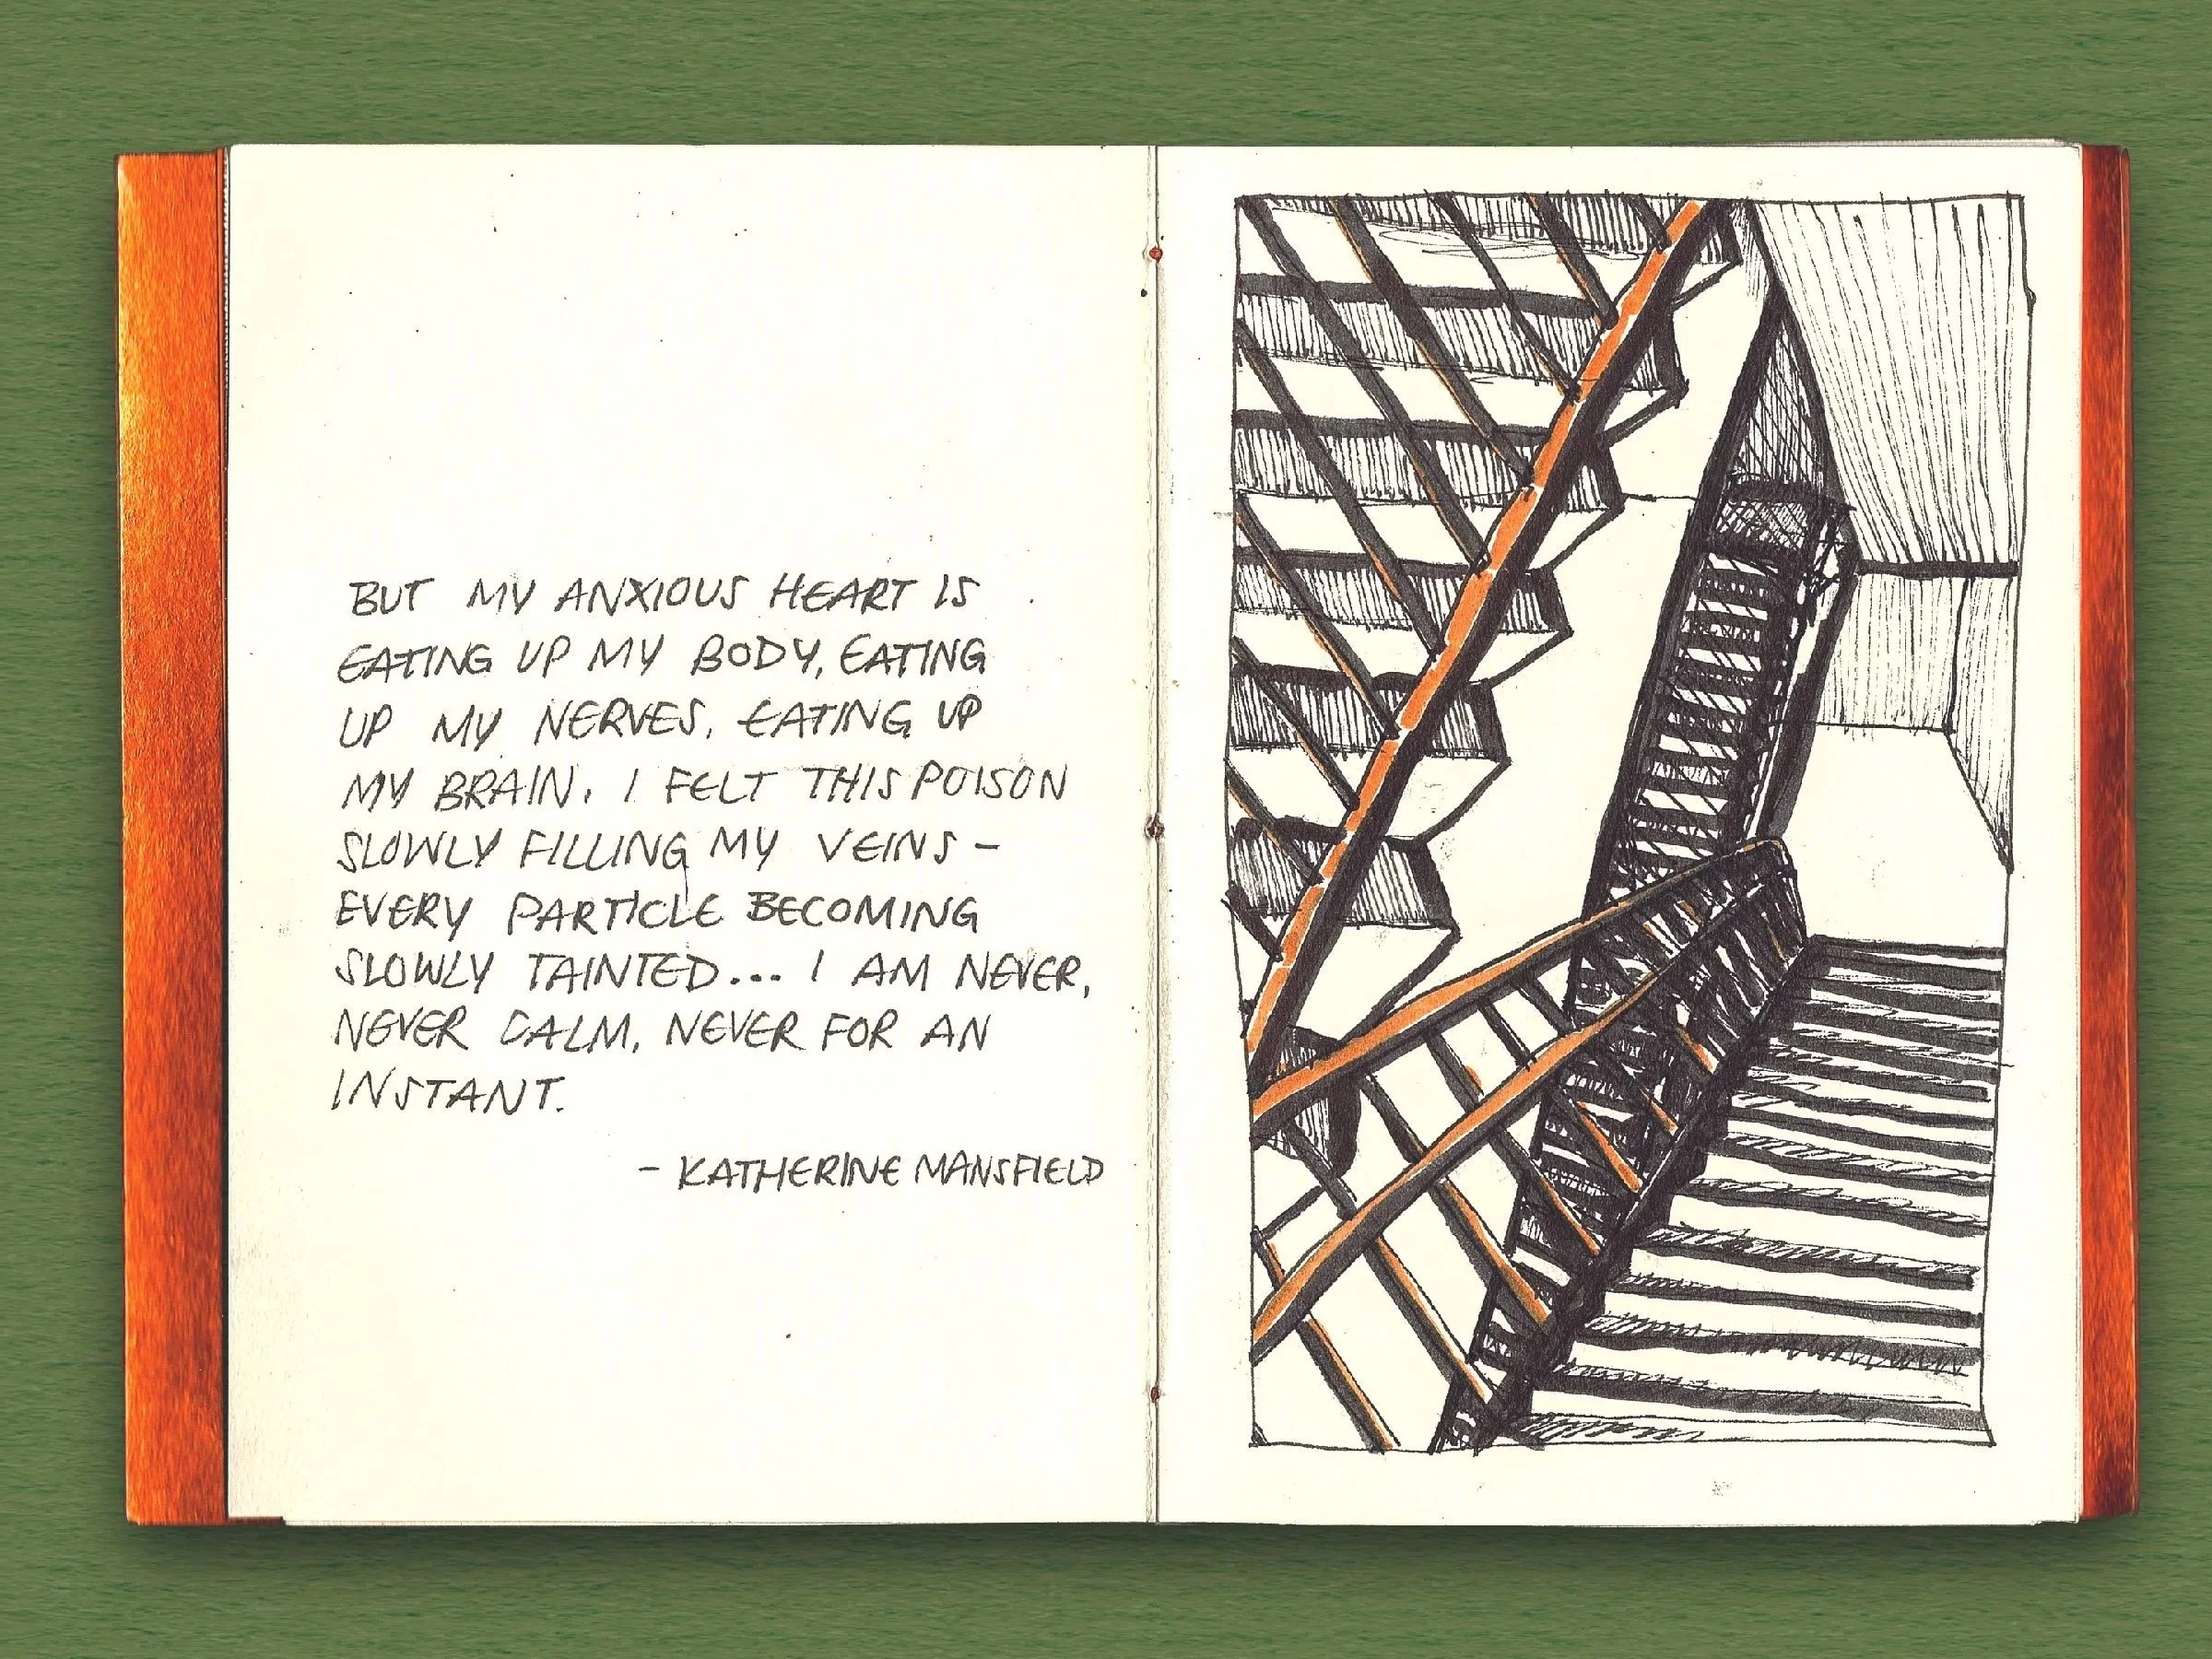 BUT MY ANXIOUS HEART IS
EATING UP MY BODY, EATING
UP MY NERVES, EATING UP
MY BRAIN. I FELT THIS POISON
SLOWLY FILLING MY VEINS –
EVERY PARTICLE BECOMING
SLOWLY TAINTED... I AM NEVER,
NEVER CALM, NEVER FOR AN
INSTANT.
– KATHERINE MANSFIELD